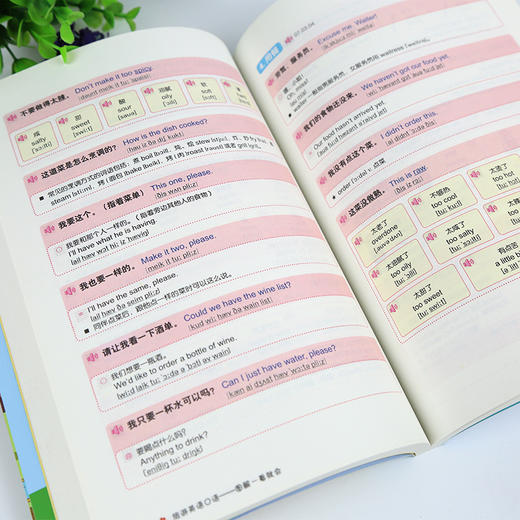 不要做得太辣。 Don't make it too spicy.
[dəunt meik it tu: 'spaisi]
咸
salty
['sɔ:lti]
甜
sweet
[swi:t]
酸
sour
['sauə]
油腻
oily
['ɔili]
软
soft
[sɔft]
这道菜是怎么烹调的? How is the dish cooked?
[hau iz ðə diʃ kukt]
■ 常见的烹调方式的词语包括: 煮 boil [bɔil]、炖、烩 stew [stju:]、煎、炒 fry [frai]、
steam [sti:m]、烤 (面包) bake [beik]、烤 (肉) roast [rəust] 或者 grill [gril]
我要这个。(指着菜单) This one, please.
[ðis wʌn pli:z]
我要和那个人一样的。(指着旁边其他人的食物)
I'll have what he is having.
[ail hæv wɔt hi: iz 'hæviŋ]
我也要一样的。 Make it two, please.
[meik it tu: pli:z]
I'll have the same, please.
[ail hæv ðə seim pli:z]
■ 同伴点菜后，跟他点一样的菜时可以这么说。
请让我看一下酒单。 Could we have the wine list?
[kud wi: hæv ðə wain list]
我们想要一瓶酒。
We'd like to order a bottle of wine.
[wi:d laik tu: 'ɔ:də ə 'bɔtl əv wain]
我只要一杯水可以吗? Can I just have water, please?
[kæn ai dʒʌst hæv 'wɔ:tə pli:z]
要喝点什么吗?
Anything to drink?
['eniθiŋ tu: driŋk]
旅游英语口语——图解一看就会
07.03.04
劳驾，服务员。 Excuse me. Waiter!
我们的食物还没来。 We haven't got our food yet.
Our food hasn't arrived yet.
我没有点这个菜。 I didn't order this.
[ai didnt 'ɔ:də ðis]
■ order ['ɔ:də] v. 点菜
这菜没做熟。 This is raw.
[ðis iz rɔ:]
太老了
overdone
不够热
too cool
[tu: ku:l]
太烫了
too hot
太油腻了
too oily
太咸了
too salty
太甜了
too sweet
[tu: swi:t]
有点苦
a little